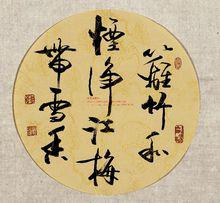 籬竹和
煙淨江梅
帶雪香